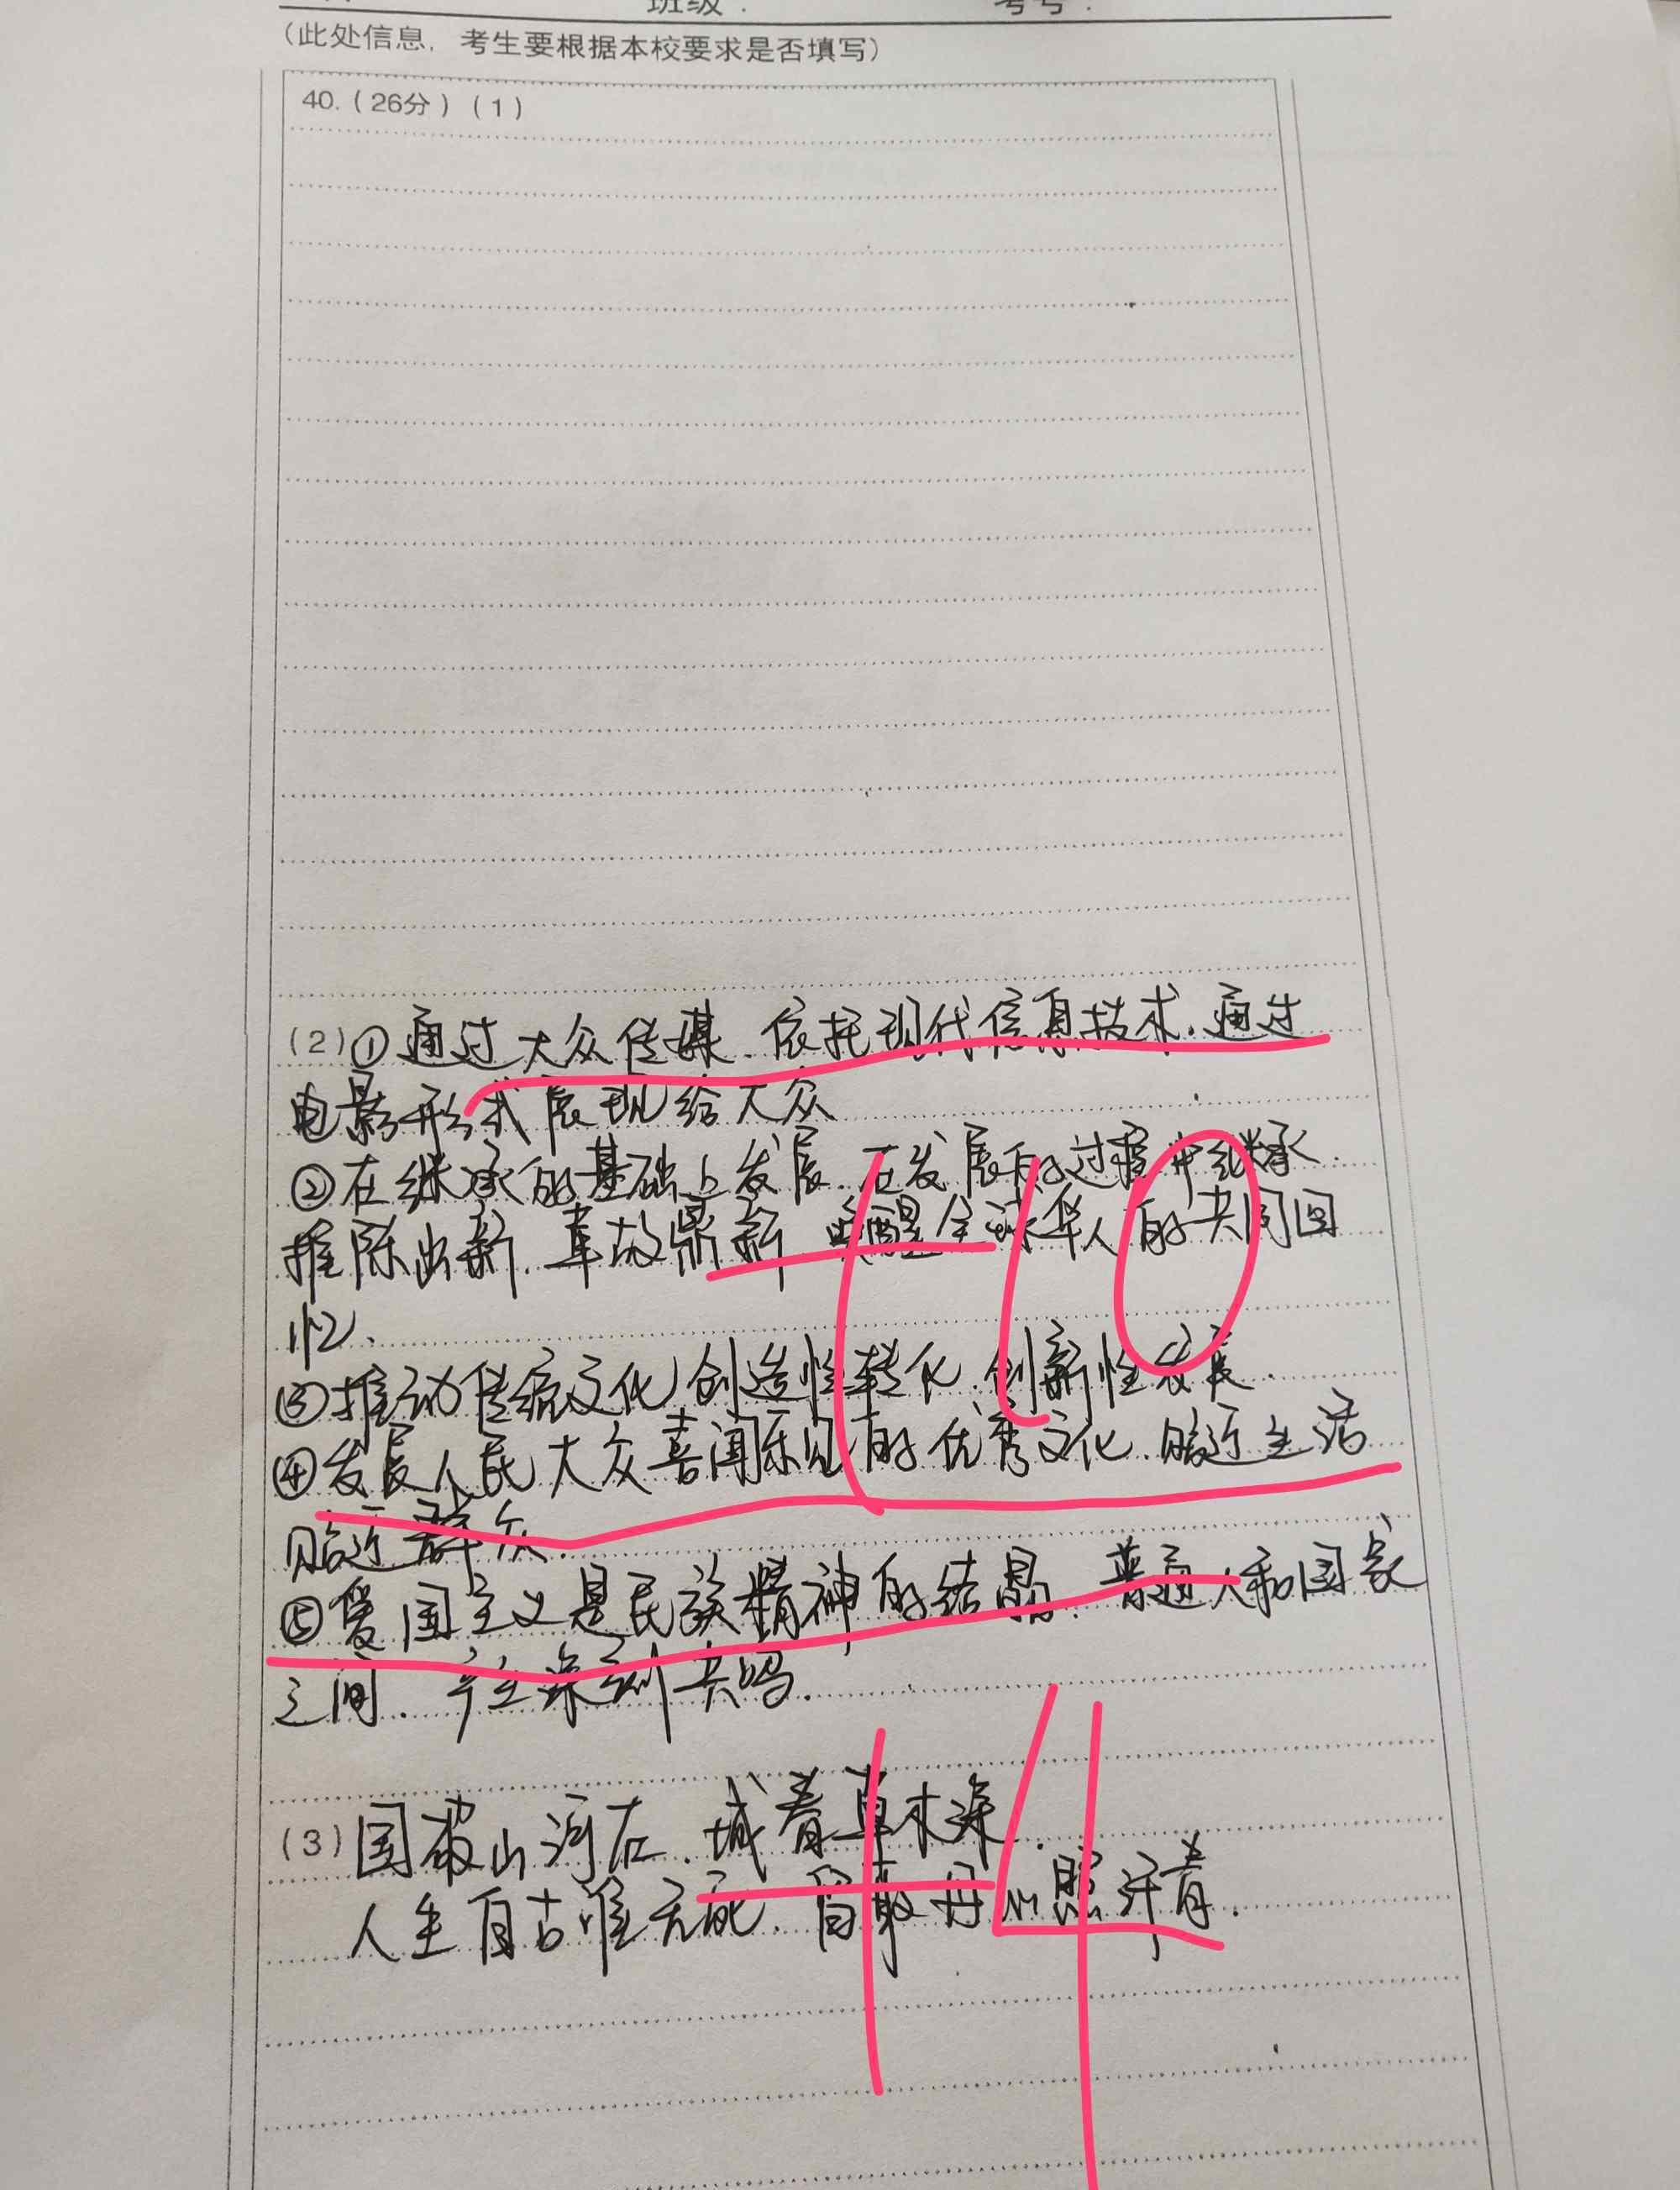 班级：    考号：
（此处信息，考生要根据本校要求是否填写）
40.（26分）（1）
（2）①通过大众传媒.依托现代信息技术.通过
电影形式展现给大众
②在继承的基础上发展.在发展的过程中继承.
推陈出新.革故鼎新 唤醒全球华人的共同回
忆.
③推动传统文化创造性转化.创新性发展.
④发展人民大众喜闻乐见的优秀文化.贴近生活
贴近群众.
⑤爱国主义是民族精神的结晶.普通人和国家
之间.产生深刻共鸣.
+10
（3）国破山河在.城春草木深.
人生自古唯无死.留取丹心照汗青.
+4